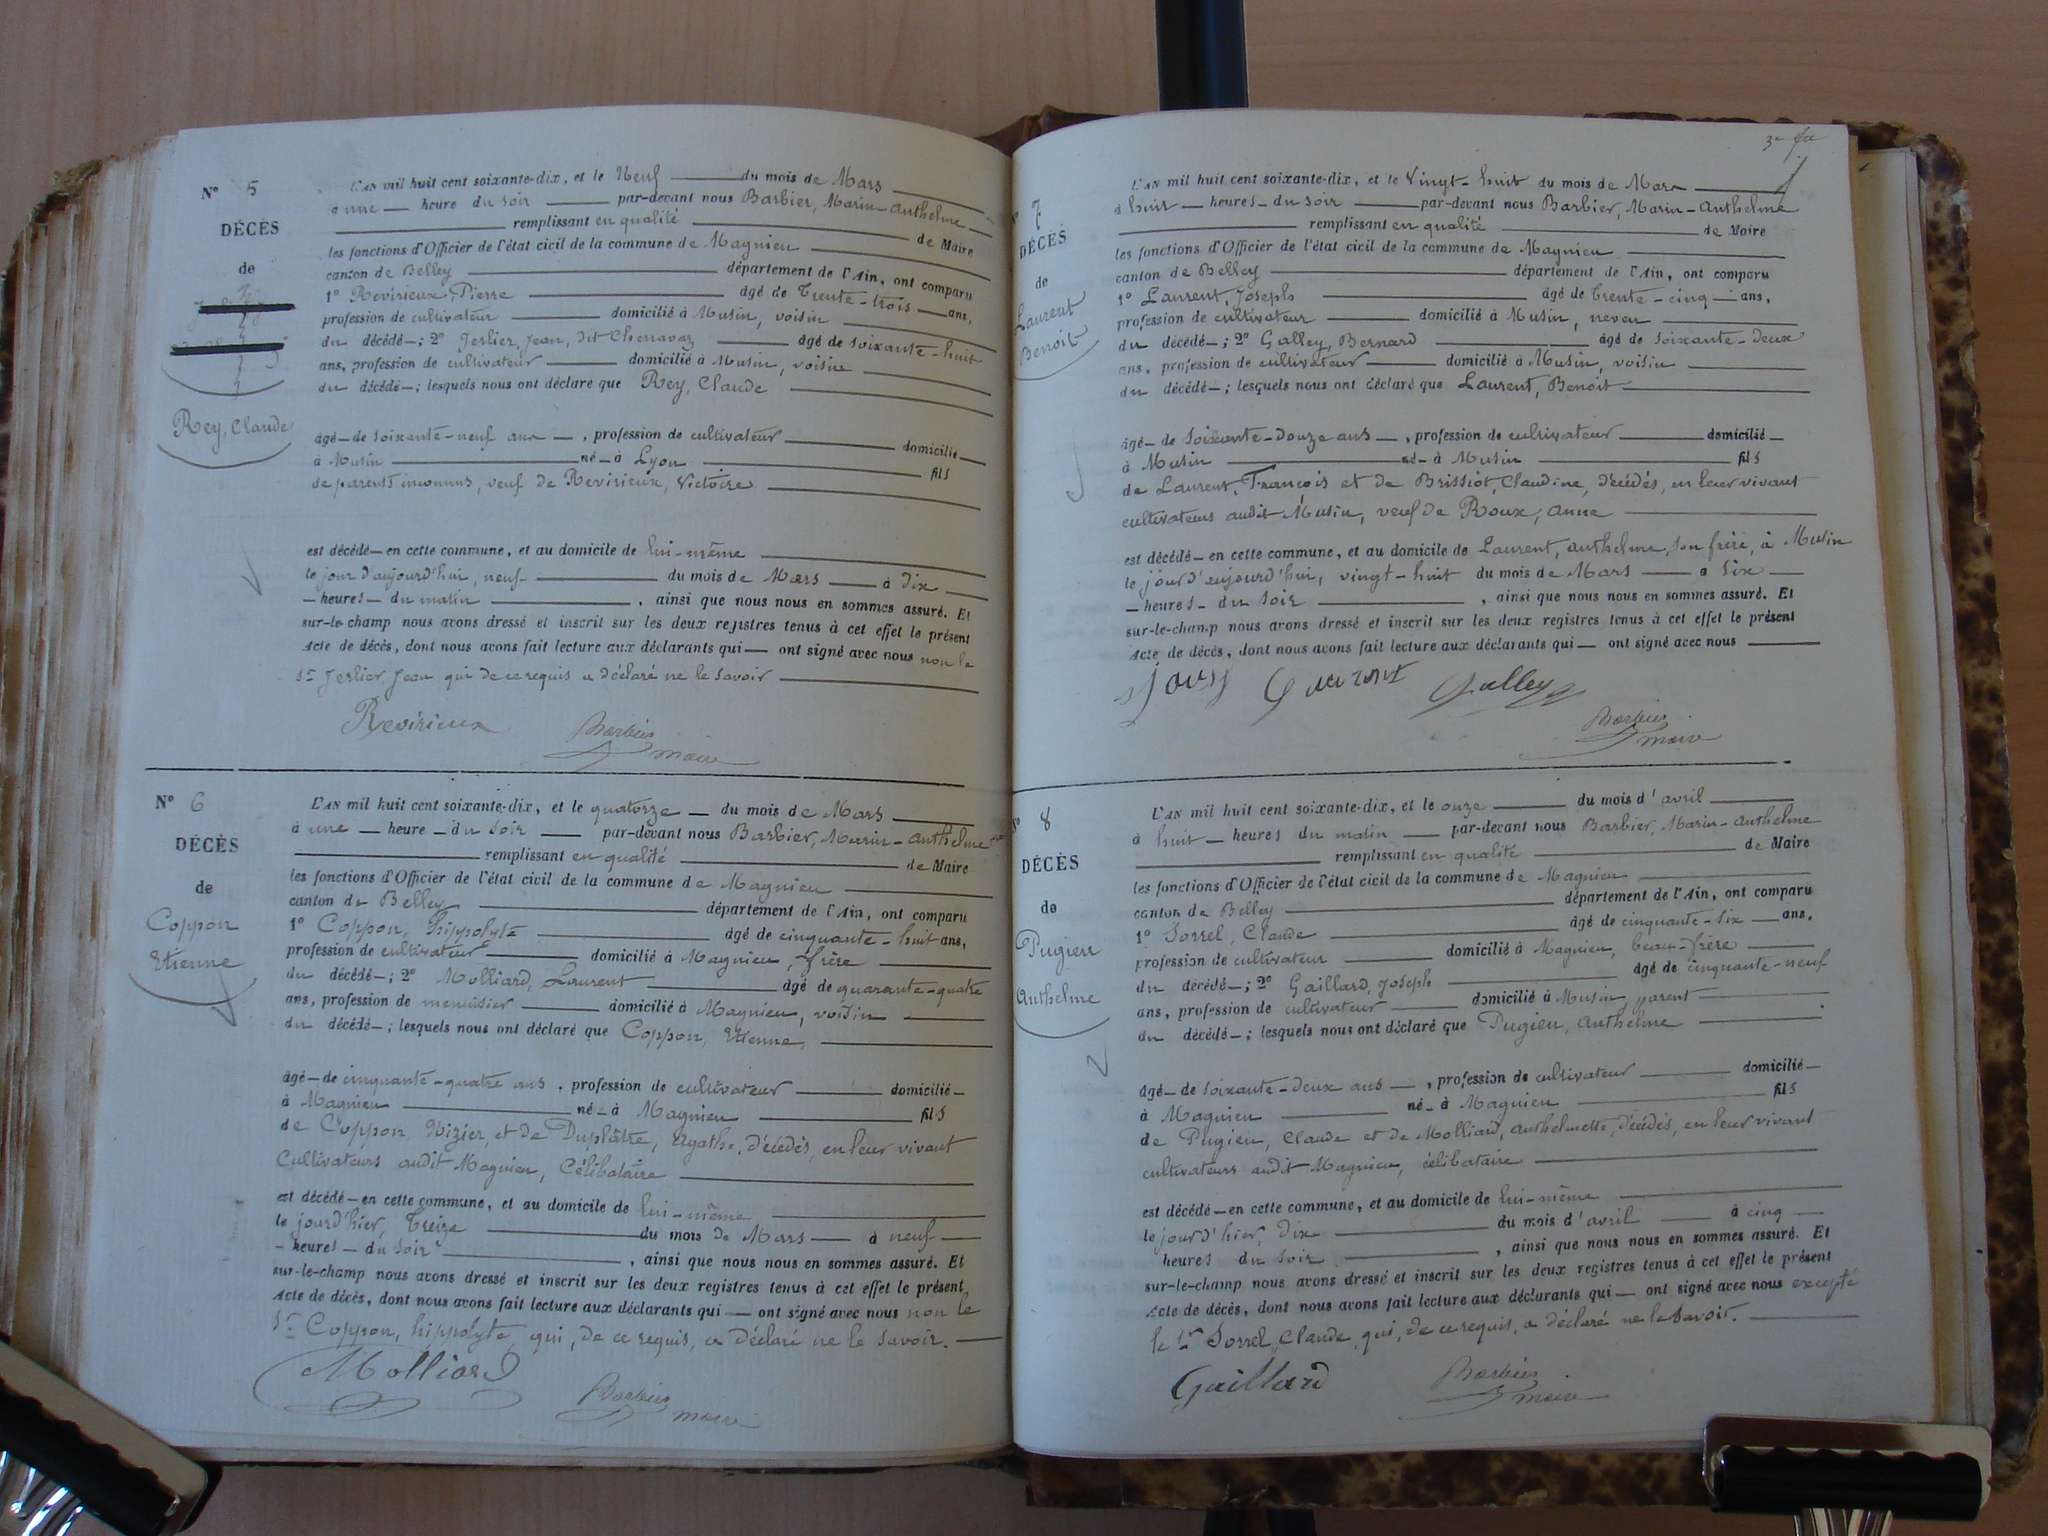 N° 5
DÉCÈS
de
Rey, Claude
L'AN mil huit cent soixante-dix, et le Neuf du mois de Mars
à une heure du soir par-devant nous Barbier, Marin-Anthelme
remplissant en qualité de Maire
les fonctions d'Officier de l'état civil de la commune de Magnieu
canton de Belley département de l'Ain, ont comparu
1° Revirieux, Pierre âgé de Trente-trois ans,
profession de cultivateur domicilié à Musin, voisin
du décédé ; 2° Jerlier, Jean, dit Chenavaz âgé de soixante-huit
ans, profession de cultivateur domicilié à Musin, voisin
du décédé ; lesquels nous ont déclaré que Rey, Claude
âgé de soixante-neuf ans, profession de cultivateur domicilié
à Musin né à Lyon fils
de parents inconnus, veuf de Revirieux, Victoire
est décédé en cette commune, et au domicile de lui-même
le jour d'aujourd'hui, neuf du mois de Mars à dix
heures du matin, ainsi que nous nous en sommes assuré. Et
sur-le-champ nous avons dressé et inscrit sur les deux registres tenus à cet effet le présent
Acte de décès, dont nous avons fait lecture aux déclarants qui ont signé avec nous non le
Sr Jerlier Jean qui de ce requis a déclaré ne le savoir
Revirieux Barbier maire
N° 6
DÉCÈS
de
Coppon
Etienne
L'AN mil huit cent soixante-dix, et le quatorze du mois de Mars
à une heure du soir par-devant nous Barbier, Marin-Anthelme
remplissant en qualité de Maire
les fonctions d'Officier de l'état civil de la commune de Magnieu
canton de Belley département de l'Ain, ont comparu
1° Coppon, hippolyte âgé de cinquante-huit ans,
profession de cultivateur domicilié à Magnieu, frère
du décédé ; 2° Molliard, Laurent âgé de quarante-quatre
ans, profession de menuisier domicilié à Magnieu, voisin
du décédé ; lesquels nous ont déclaré que Coppon, Etienne,
âgé de cinquante-quatre ans, profession de cultivateur domicilié
à Magnieu né à Magnieu fils
de Coppon, Nizier, et de Duplâtre, Agathe, décédés, en leur vivant
Cultivateurs audit Magnieu, Célibataire
est décédé en cette commune, et au domicile de lui-même
le jour d'hier, Treize du mois de Mars à neuf
heures du soir, ainsi que nous nous en sommes assuré. Et
sur-le-champ nous avons dressé et inscrit sur les deux registres tenus à cet effet le présent
Acte de décès, dont nous avons fait lecture aux déclarants qui ont signé avec nous non le
Sr Coppon, hippolyte, qui, de ce requis, a déclaré ne le savoir.
Molliard Barbier maire
N° 7
DÉCÈS
de
Laurent
Benoit
L'AN mil huit cent soixante-dix, et le Vingt-huit du mois de Mars
à huit heures du soir par-devant nous Barbier, Marin-Anthelme
remplissant en qualité de Maire
les fonctions d'Officier de l'état civil de la commune de Magnieu
canton de Belley département de l'Ain, ont comparu
1° Laurent, Joseph âgé de Trente-cinq ans,
profession de cultivateur domicilié à Musin, neveu
du décédé ; 2° Galley, Bernard âgé de soixante-deux
ans, profession de cultivateur domicilié à Musin, voisin
du décédé ; lesquels nous ont déclaré que Laurent, Benoit
âgé de soixante-douze ans, profession de cultivateur domicilié
à Musin né à Musin fils
de Laurent, François et de Brissiot, Claudine, décédés, en leur vivant
cultivateurs audit Musin, veuf de Roux, Anne
est décédé en cette commune, et au domicile de Laurent, Anthelme, son frère, à Musin
le jour d'aujourd'hui, vingt-huit du mois de Mars à six
heures du soir, ainsi que nous nous en sommes assuré. Et
sur-le-champ nous avons dressé et inscrit sur les deux registres tenus à cet effet le présent
Acte de décès, dont nous avons fait lecture aux déclarants qui ont signé avec nous
Galley
Barbier maire
N° 8
DÉCÈS
de
Pugieu
Anthelme
L'AN mil huit cent soixante-dix, et le onze du mois d'avril
à huit heures du matin par-devant nous Barbier, Marin-Anthelme
remplissant en qualité de Maire
les fonctions d'Officier de l'état civil de la commune de Magnieu
canton de Belley département de l'Ain, ont comparu
1° Sorrel, Claude âgé de cinquante-six ans,
profession de cultivateur domicilié à Magnieu, beau-frère
du décédé ; 2° Gaillard, Joseph âgé de cinquante-neuf
ans, profession de cultivateur domicilié à Musin, parent
du décédé ; lesquels nous ont déclaré que Pugieu, Anthelme
âgé de soixante-deux ans, profession de cultivateur domicilié
à Magnieu né à Magnieu fils
de Pugieu, Claude et de Molliard, Anthelmette, décédés, en leur vivant
cultivateurs audit Magnieu, célibataire
est décédé en cette commune, et au domicile de lui-même
le jour d'hier, dix du mois d'avril à cinq
heures du soir, ainsi que nous nous en sommes assuré. Et
sur-le-champ nous avons dressé et inscrit sur les deux registres tenus à cet effet le présent
Acte de décès, dont nous avons fait lecture aux déclarants qui ont signé avec nous excepté
le Sr Sorrel, Claude, qui, de ce requis, a déclaré ne le savoir.
Gaillard Barbier maire